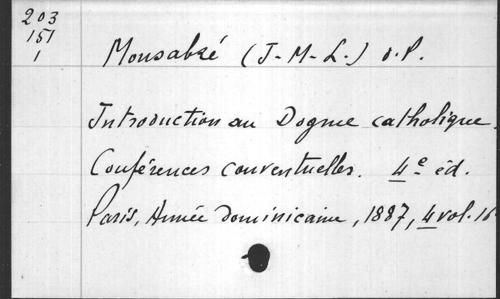 203
151
1
Monsabré (J-M-L.) O.P.
Introduction au Dogme catholique.
Conférences conventuelles. 4e éd.
Paris, Année dominicaine, 1887, 4 vol. 16